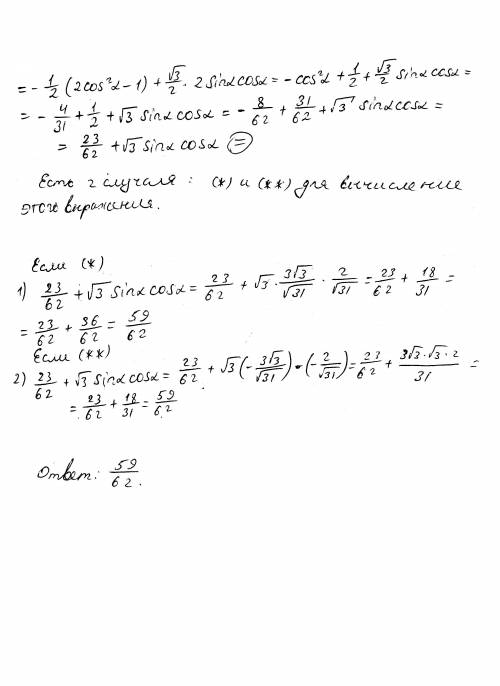 = - 1/2 (2cos²α - 1) + √3/2 · 2 sinα cosα = - cos²α + 1/2 + √3/2 sinα cosα =
= - 4/31 + 1/2 + √3 sinα cosα = - 8/62 + 31/62 + √3 sinα cosα =
= 23/62 + √3 sinα cosα =
Есть 2 случая : (*) и (**) для вычисление
этого выражания.
Если (*)
1) 23/62 + √3 sinα cosα = 23/62 + √3 · 3√3/√31 · 2/√31 = 23/62 + 18/31 =
= 23/62 + 36/62 = 59/62
Если (**)
2) 23/62 + √3 sinα cosα = 23/62 + √3 (- 3√3/√31) · (- 2/√31) = 23/62 + 3√3 · √3 · 2/31 =
= 23/62 + 18/31 = 59/62
Ответ: 59/62.